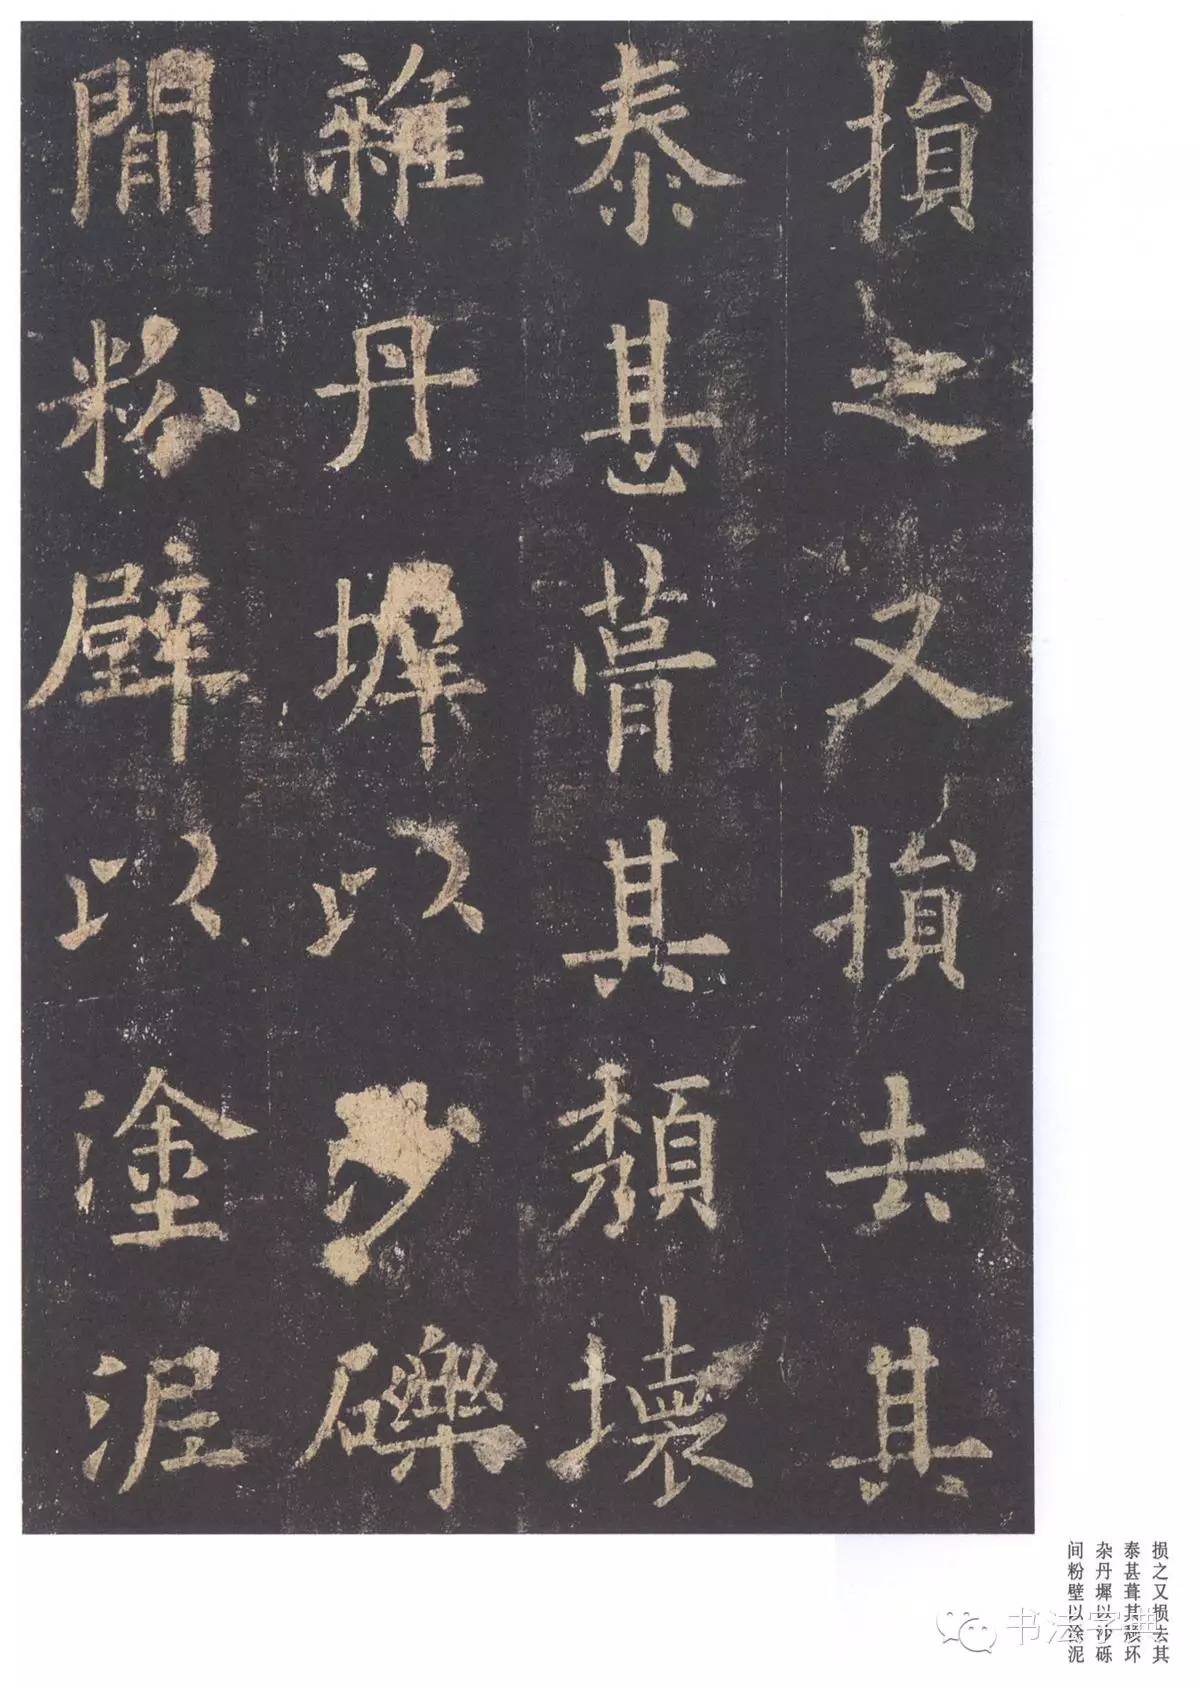 損之又損去其
泰甚葺其頹壞
雜丹墀以沙礫
間粉壁以塗泥
损之又损去其
泰甚葺其颓坏
杂丹墀以沙砾
间粉壁以涂泥
书法字典